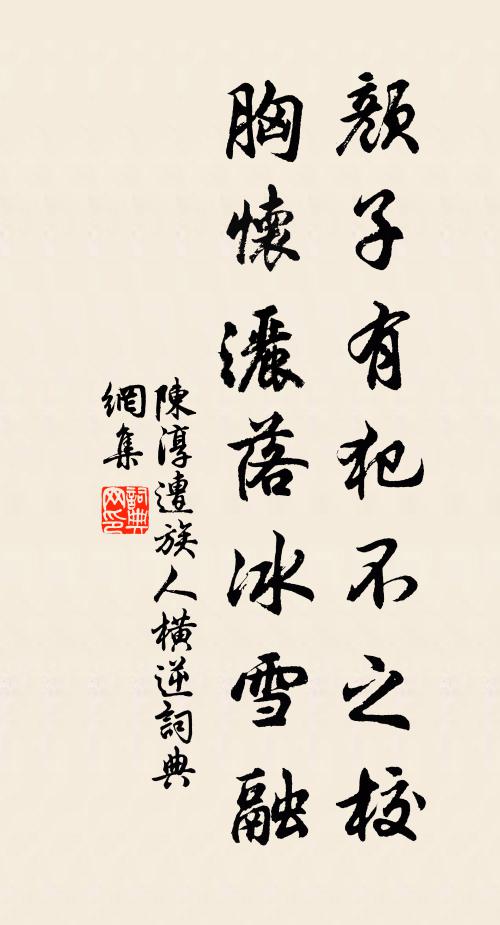 顏子有犯不之校
胸懷灑落冰雪融
陳淳遭族人橫逆詞典
網集
詞典
网印